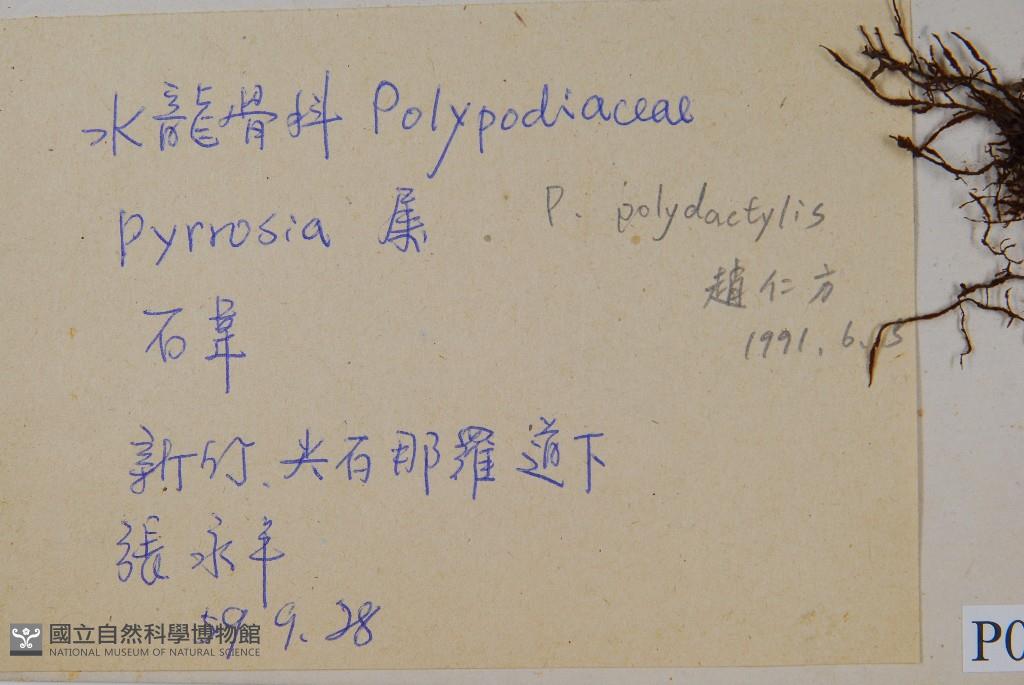 水龍骨科 Polypodiaceae
Pyrrosia 属
P. polydactylis
趙仁方
1991. 6. 13
石韋
新竹、尖石那羅道下
張永年
59 9. 28
國立自然科學博物館
NATIONAL MUSEUM OF NATURAL SCIENCE
P0